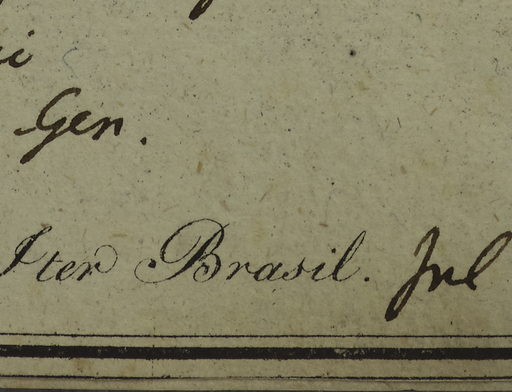 i
Gen.
Iter Brasil. Jul